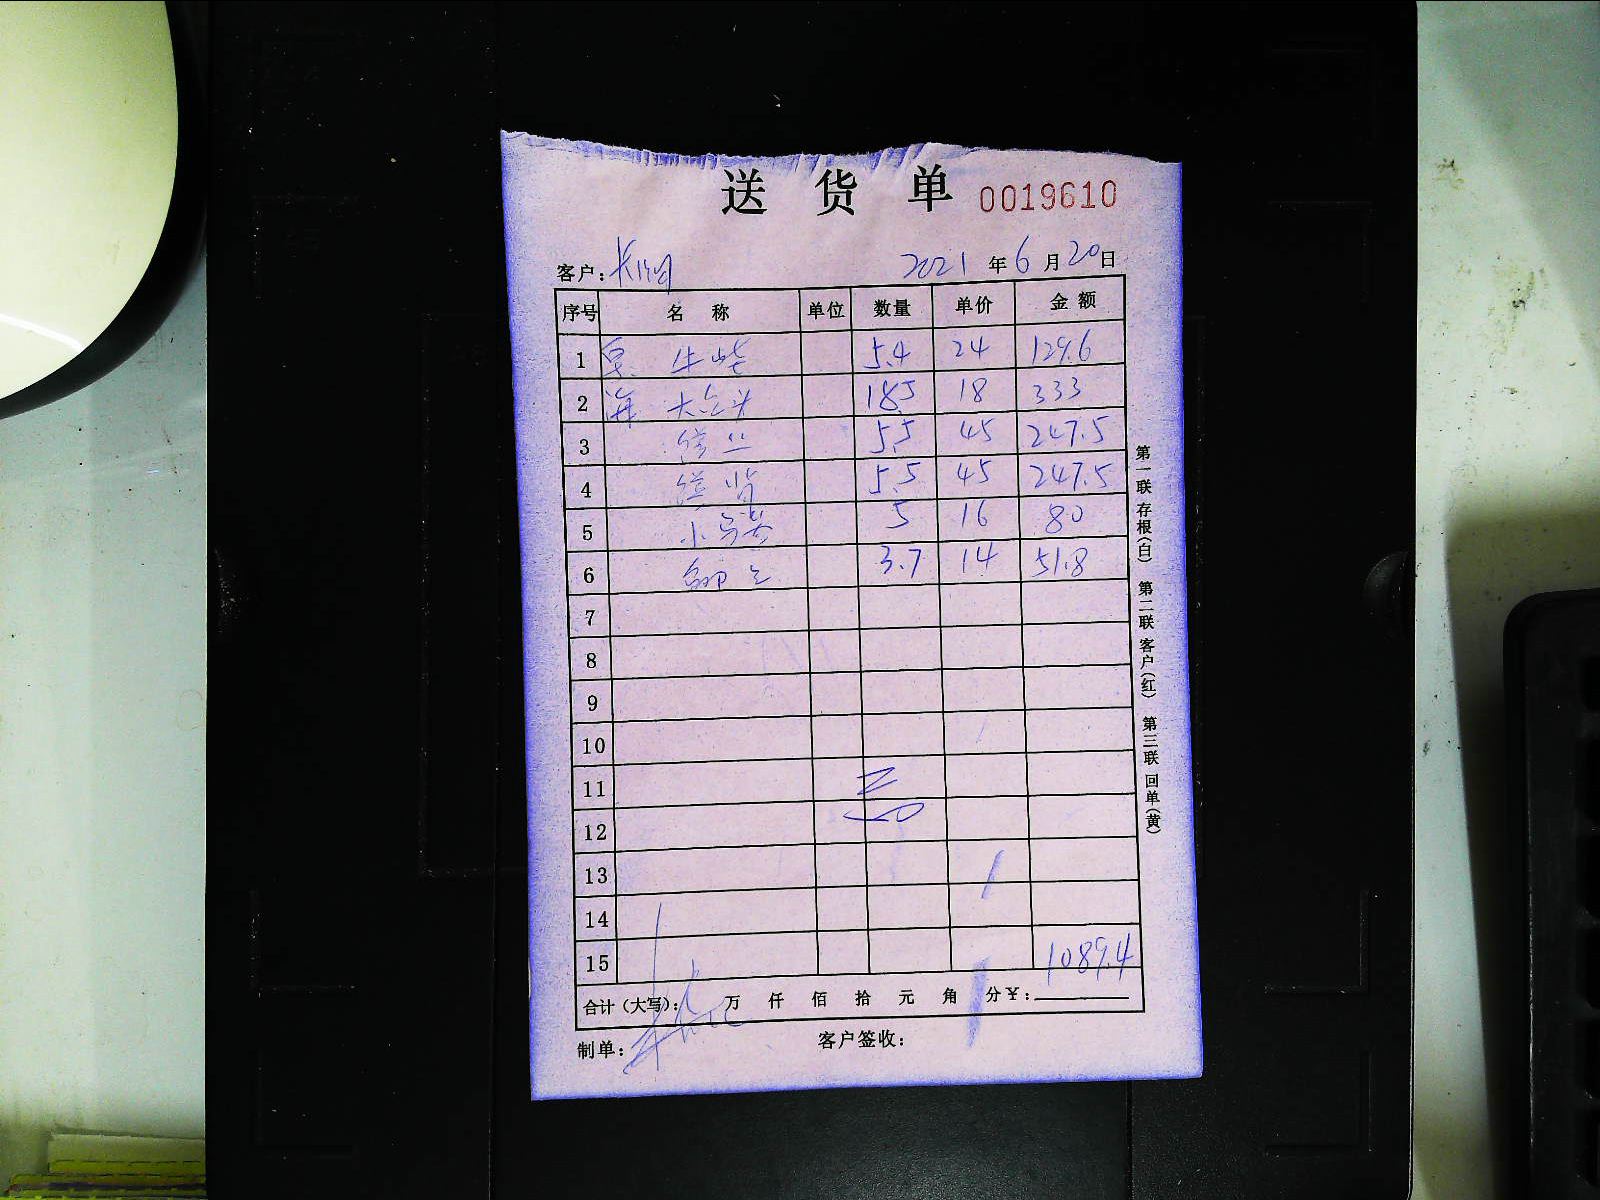 送货单 0019610
客户: 2021年6月20日
序号 名称 单位 数量 单价 金额
1 牛 5.4 24 129.6
2 海 大 18.5 18 333
3 5.5 45 247.5
4 5.5 45 247.5
5 小 5 16 80
6 3.7 14 51.8
7
8
9
10
11
12
13
14
15 1089.4
合计(大写): 万 仟 佰 拾 元 角 分¥:
制单: 客户签收:
第一联 存根(白) 第二联 客户(红) 第三联 回单(黄)